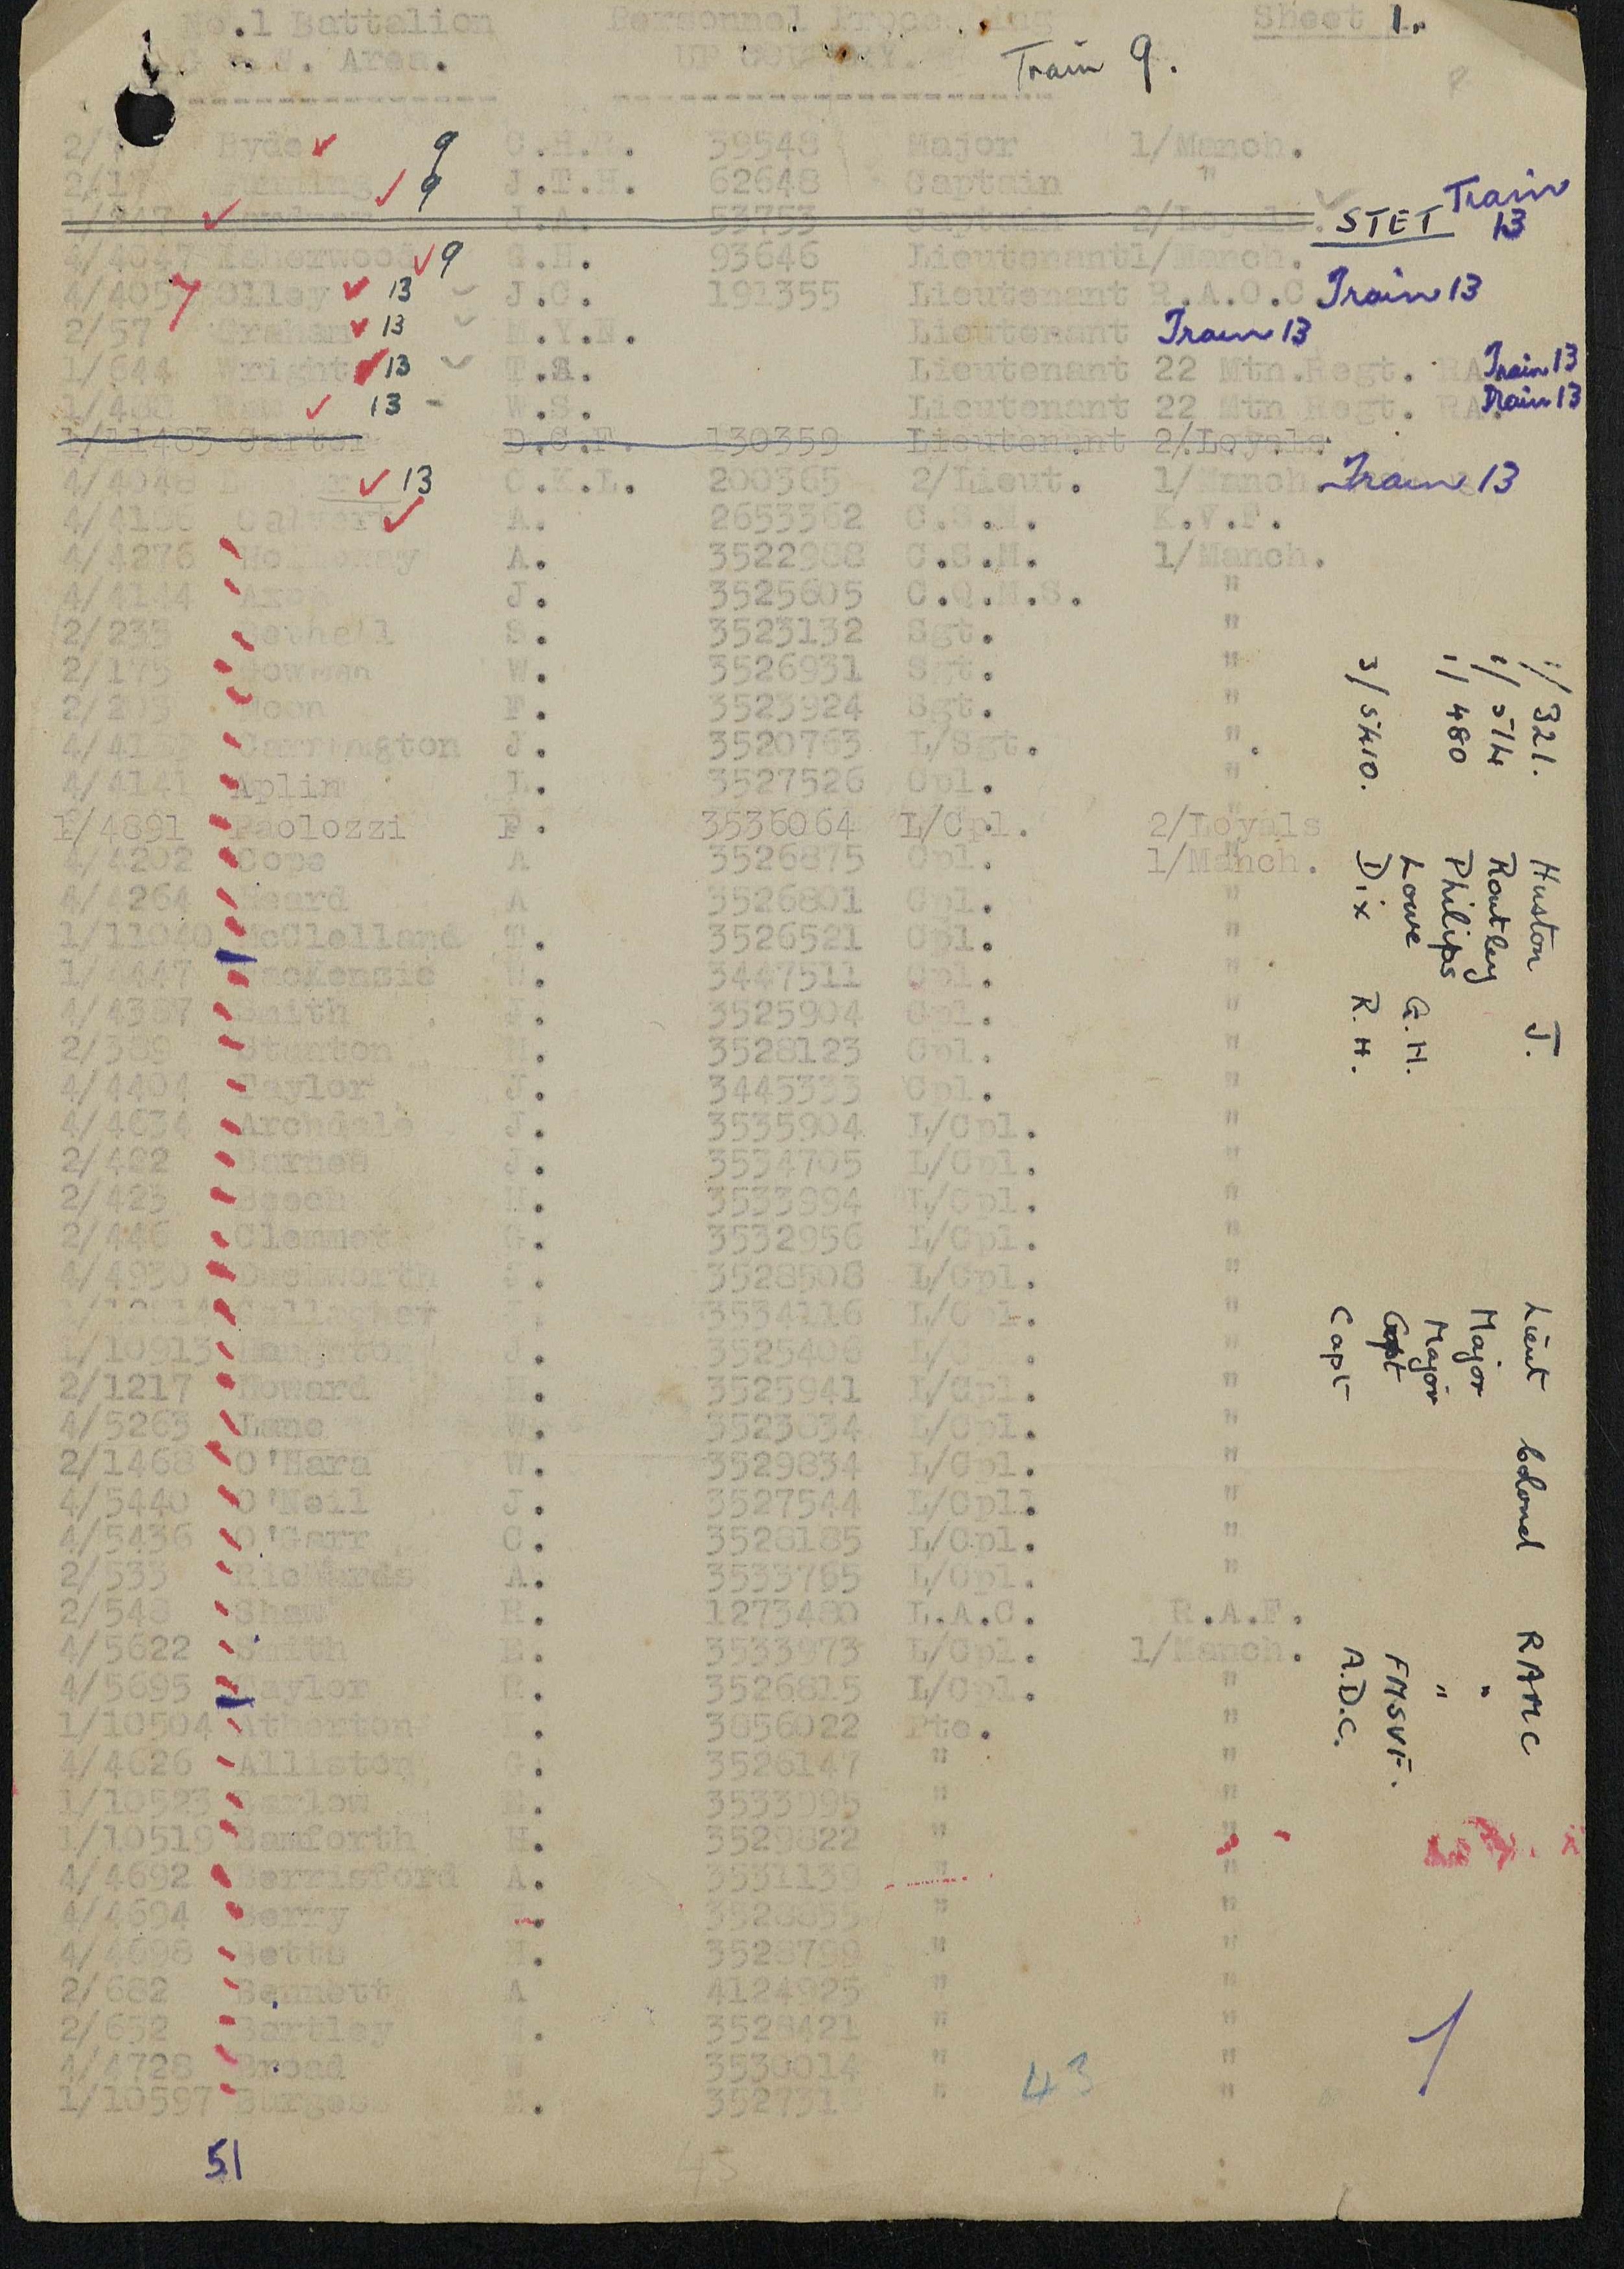 No.1 Battalion Personnel Processing Sheet 1.
Area. UP COUNTRY. Train 9.
2/ Hyde 9 C.H.R. 39548 Major 1/Manch.
2/17 9 J.T.H. 62648 Captain "
J.A. 53753 Captain 2/Loyals. STET Train 13
4/4047 Isherwood 9 G.H. 93646 Lieutenant 1/Manch.
4/405 Olley 13 J.C. 191355 Lieutenant R.A.O.C Train 13
2/57 Graham 13 M.Y.E. Lieutenant Train 13
1/644 Wright 13 T.A. Lieutenant 22 Mtn.Regt. RA Train 13
13 W.S. Lieutenant 22 Mtn Regt. RA. Train 13
1/11483 Carter D.C.F. 130359 Lieutenant 2/Loyals
4/4048 13 C.K.L. 200365 2/Lieut. 1/Manch. Train 13
Calvert A. 2653362 C.S.M. K.V.F.
4/4276 Holloway A. 3522988 C.S.M. 1/Manch.
4/4144 J. 3525605 C.Q.M.S. "
2/233 Bethell S. 3523132 Sgt. "
2/175 Bowman W. 3526931 Sgt. "
2/203 Moon F. 3523924 Sgt. "
Carrington J. 3520763 L/Sgt. ".
4/4141 Aplin L. 3527526 Cpl. "
1/4891 Paolozzi P. 3536064 L/Cpl. 2/Loyals
4/4202 Cope A 3526875 Cpl. 1/Manch.
4/4264 Heard A 3526801 Cpl. "
1/11040 McClelland T. 3526521 Cpl. "
1/4447 MacKenzie 3447511 Cpl. "
4/4387 Smith J. 3525904 Cpl. "
2/389 Stunton H. 3528123 Cpl. "
4/4404 Taylor J. 3445333 Cpl. "
4/4634 Archdale J. 3535904 L/Cpl. "
2/422 Barnes J. 3534705 L/Cpl. "
2/425 Beech H. 3533894 L/Cpl. "
2/446 Clemmet G. 3532956 L/Cpl. "
4/4930 Duckworth J. 3528508 L/Cpl. "
Gallagher 3534116 L/Cpl. "
1/10913 J. 3525408 L/ . "
2/1217 Howard 3525941 L/Cpl. "
4/5263 Lane W. 3523834 L/Cpl. "
2/1468 O'Hara W. 3529834 L/Cpl. "
4/5440 O'Neil J. 3527544 L/Cpl. "
4/5436 O'Garr C. 3528185 L/Cpl. "
2/533 Richards A. 3533765 L/Cpl. "
2/548 Shaw R. 1273480 L.A.C. R.A.F.
4/5622 Smith E. 3533973 L/Cpl. 1/Manch.
4/5695 Taylor R. 3526815 L/Cpl. "
1/10504 Atherton 3856022 Pte. "
4/4626 Alliston G. 3526147 " "
1/10523 Barlow 3533995 " "
1/10519 Bamforth H. 3529822 " "
4/4692 Berrisford A. 3531139 " "
4/4694 Berry 3528855 " "
4/4698 Betts H. 3528799 " "
2/682 Bennett A 4124925 " "
2/652 Bartley 3528421 " "
4/4728 Broad W 3530014 " "
1/10597 Burgess 352731 " "
43
51
1
1/321. Huston J. Lieut Colonel RAMC
1/514 Routley Major "
1/480 Philips Major "
Lowe G.H. Capt FMSVF.
3/5410. Dix R.H. Capt A.D.C.